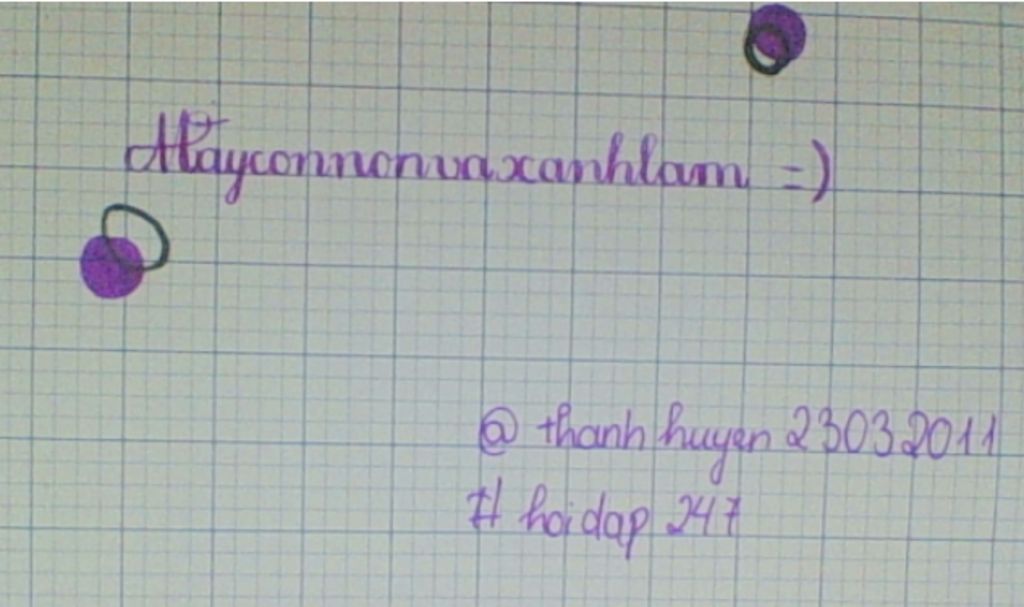 Mayconnonvaxanhlam =)
@ thanh huyen 23032011
# hoidap 247